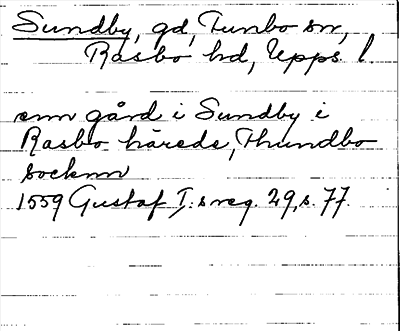 Sundby, gd, Tunbo sn,
Rasbo hd, Upps. l.
enn gård i Sundby i
Rasbo härede, Thundbo
socknn
1559 Gustaf I:s reg. 29, s. 77.